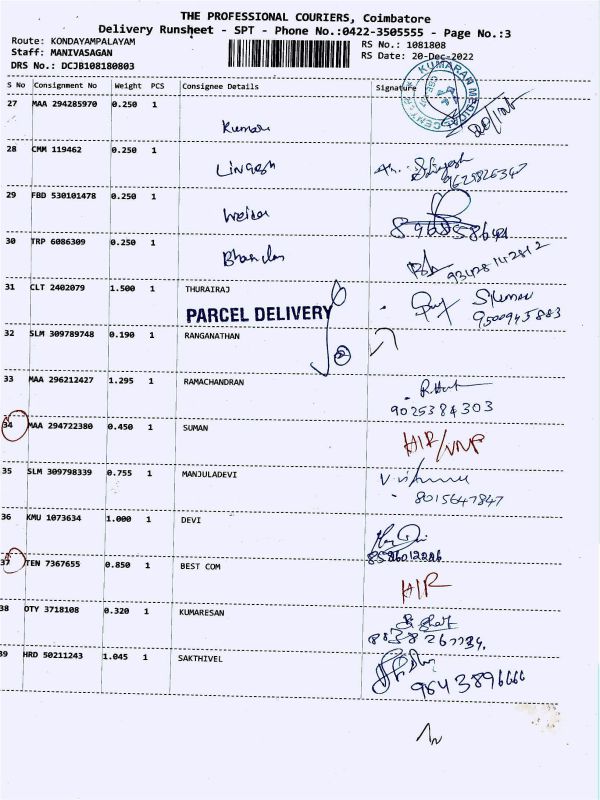 THE PROFESSIONAL COURIERS, Coimbatore
Delivery Runsheet - SPT - Phone No.:0422-3505555 - Page No.:3
Route: KONDAYAMPALAYAM RS No.: 1081808
Staff: MANIVASAGAN RS Date: 20-Dec-2022
DRS No.: DCJB108180803
S No Consignment No Weight PCS Consignee Details Signature
KUMARAN MEDICAL CENTER
27 MAA 294285970 0.250 1
Kumar
28 CMM 119462 0.250 1
Lingesh
9625826347
29 FBD 530101478 0.250 1
30 TRP 6086309 0.250 1
93428142812
31 CLT 2402079 1.500 1 THURAIRAJ
PARCEL DELIVERY
9500945883
32 SLM 309789748 0.190 1 RANGANATHAN
33 MAA 296212427 1.295 1 RAMACHANDRAN
9025384303
34 MAA 294722380 0.450 1 SUMAN
35 SLM 309798339 0.755 1 MANJULADEVI
8015647847
36 KMU 1073634 1.000 1 DEVI
37 TEN 7367655 0.850 1 BEST COM
38 OTY 3718108 0.320 1 KUMARESAN
39 HRD 50211243 1.045 1 SAKTHIVEL
9643896666